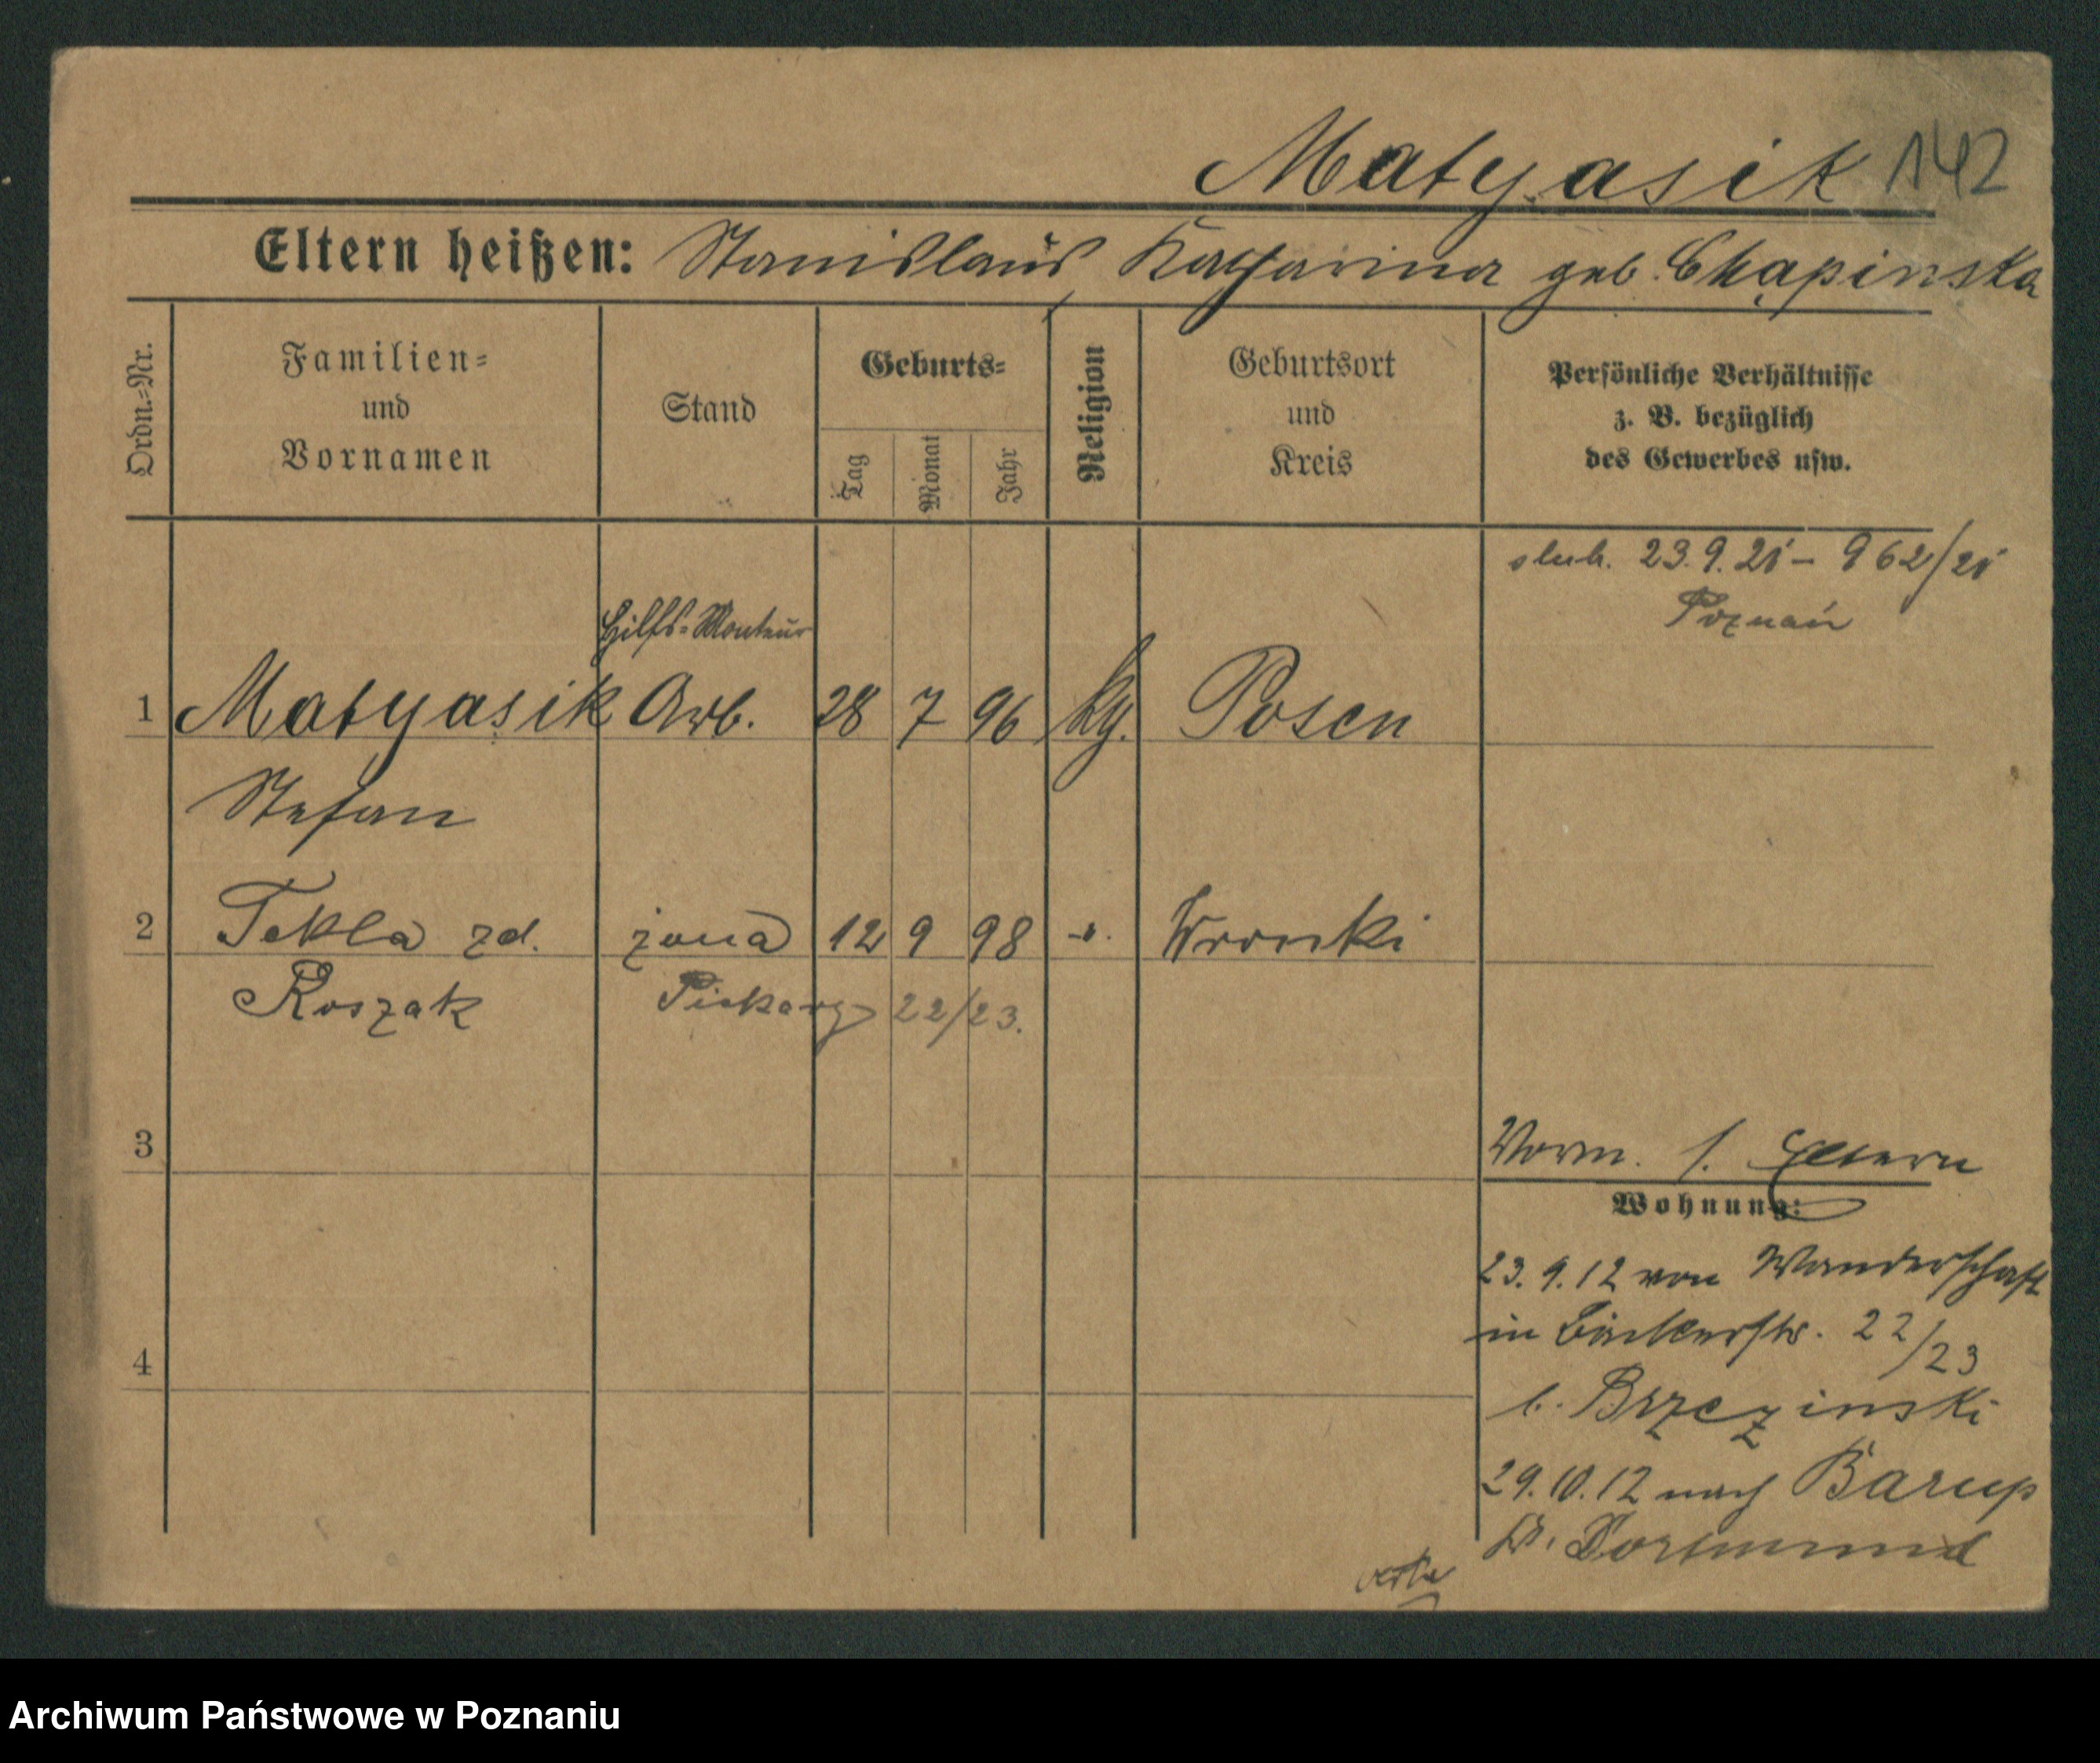 Matyasik 142
Eltern heißen: Stanislaus, Katharina geb. Chapinska
Ordn.-Nr.
Familien-
und
Vornamen
Stand
Geburts-
Tag
Monat
Jahr
Religion
Geburtsort
und
Kreis
Persönliche Verhältnisse
z. B. bezüglich
des Gewerbes usw.
slub. 23.9.21 - 962/21
Poznań
Hilfs-Monteur
1 Matyasik Arb. 28 7 96 kg. Posen
Stefan
2 Tekla zd. żona 12 9 98 Wronki
Roszak Piekary 22/23.
3
Vorm. s. Eltern
Wohnung:
23.9.12 von Wanderschaft
in Bäckerstr. 22/23
b. Brzezinski
4
29.10.12 nach Barup
Kr. Dortmund
Archiwum Państwowe w Poznaniu